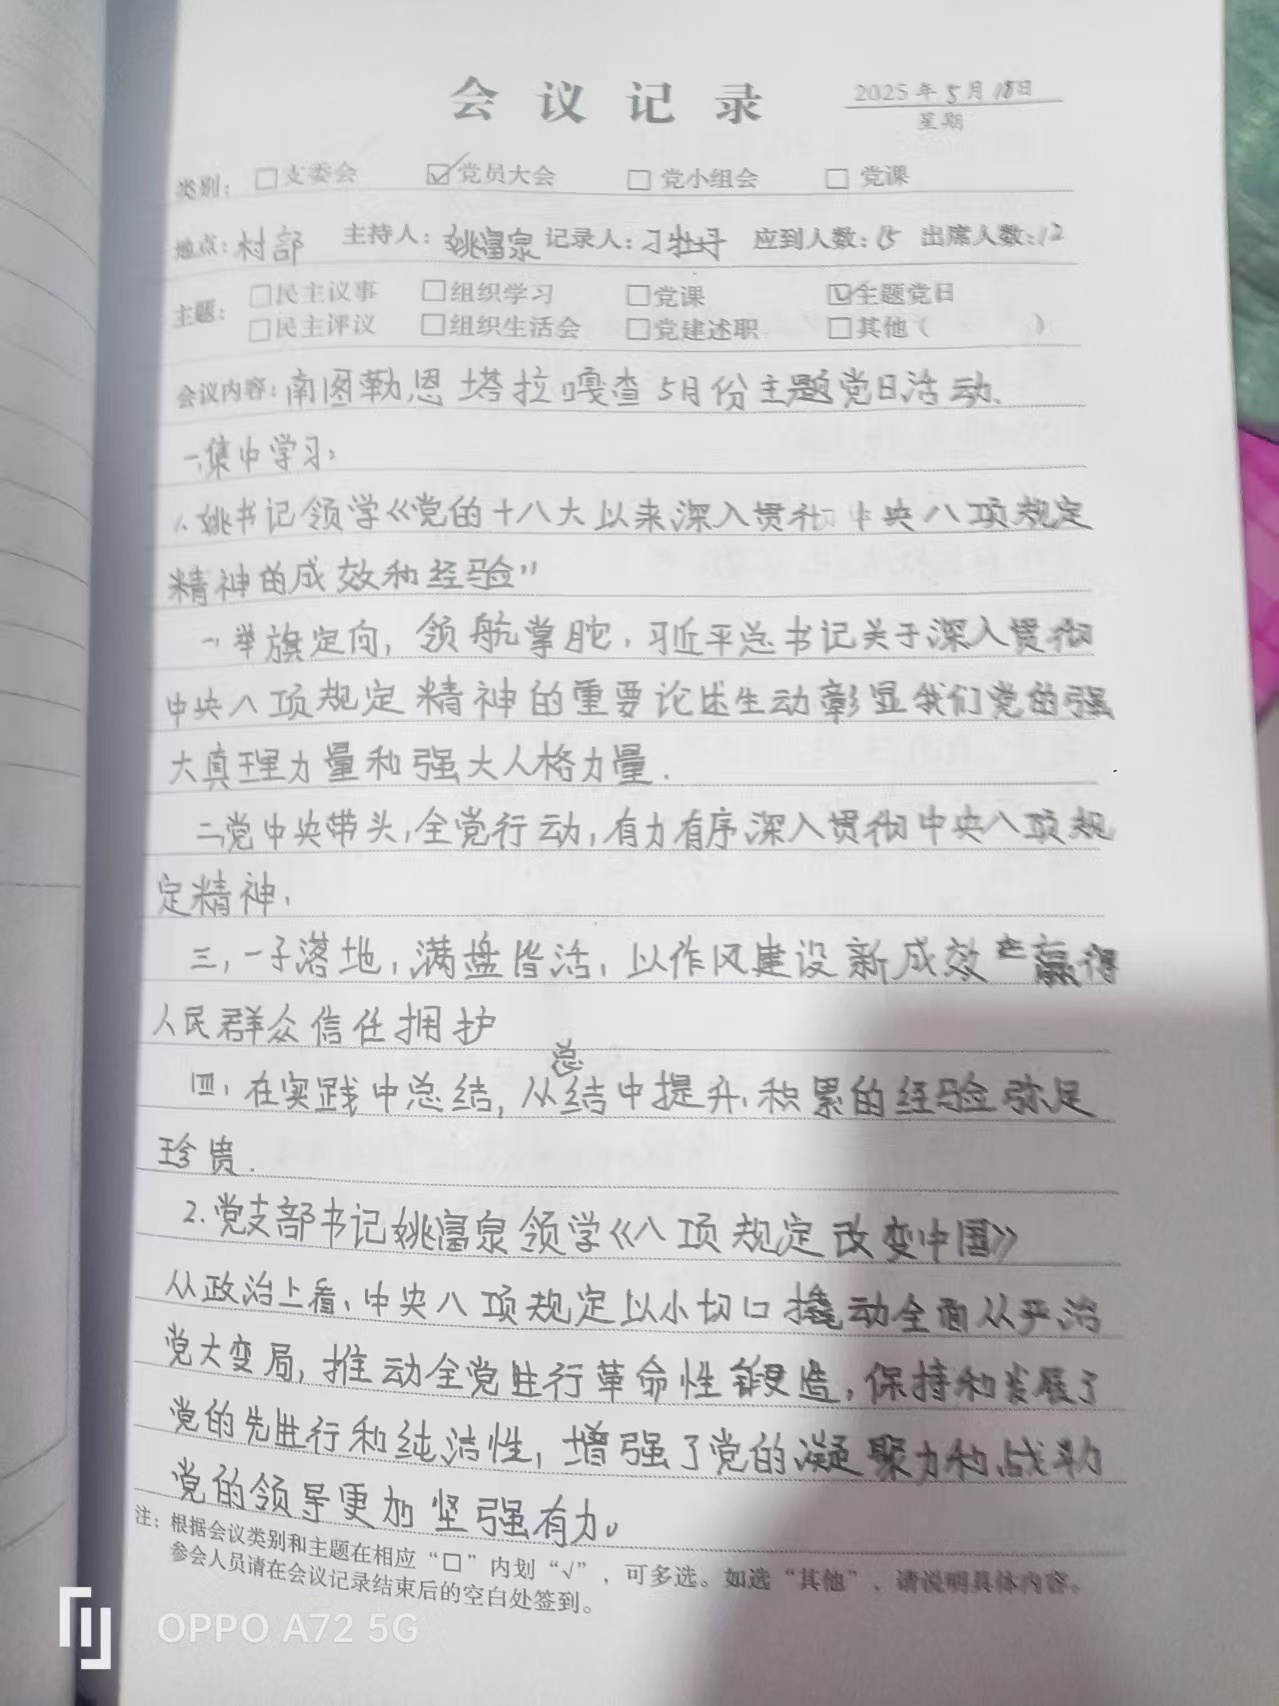 会议记录
2025年5月18日
星期
类别: □支委会 ☑党员大会 □党小组会 □党课
地点:村部 主持人:姚富泉 记录人:刁牡丹 应到人数:15 出席人数:12
主题: □民主议事 □组织学习 □党课 ☑主题党日
□民主评议 □组织生活会 □党建述职 □其他( )
会议内容:南图勒恩塔拉嘎查5月份主题党日活动、
一、集中学习:
1、姚书记领学《党的十八大以来深入贯彻中央八项规定
精神的成效和经验"
一、举旗定向,领航掌舵,习近平总书记关于深入贯彻
中央八项规定精神的重要论述生动彰显我们党的强
大真理力量和强大人格力量.
二、党中央带头,全党行动,有力有序深入贯彻中央八项规
定精神、
三,一子落地,满盘皆活,以作风建设新成效 赢得
人民群众信任拥护
四、在实践中总结,从总结中提升,积累的经验弥足
珍贵.
2.党支部书记姚富泉领学《八项规定改变中国》
从政治上看、中央八项规定以小切口撬动全面从严治
党大变局,推动全党进行革命性锻造,保持和发展了
党的先进行和纯洁性,增强了党的凝聚力和战斗力
党的领导更加坚强有力。
注:根据会议类别和主题在相应“□”内划“√”,可多选。如选“其他”,请说明具体内容。
参会人员请在会议记录结束后的空白处签到。
OPPO A72 5G